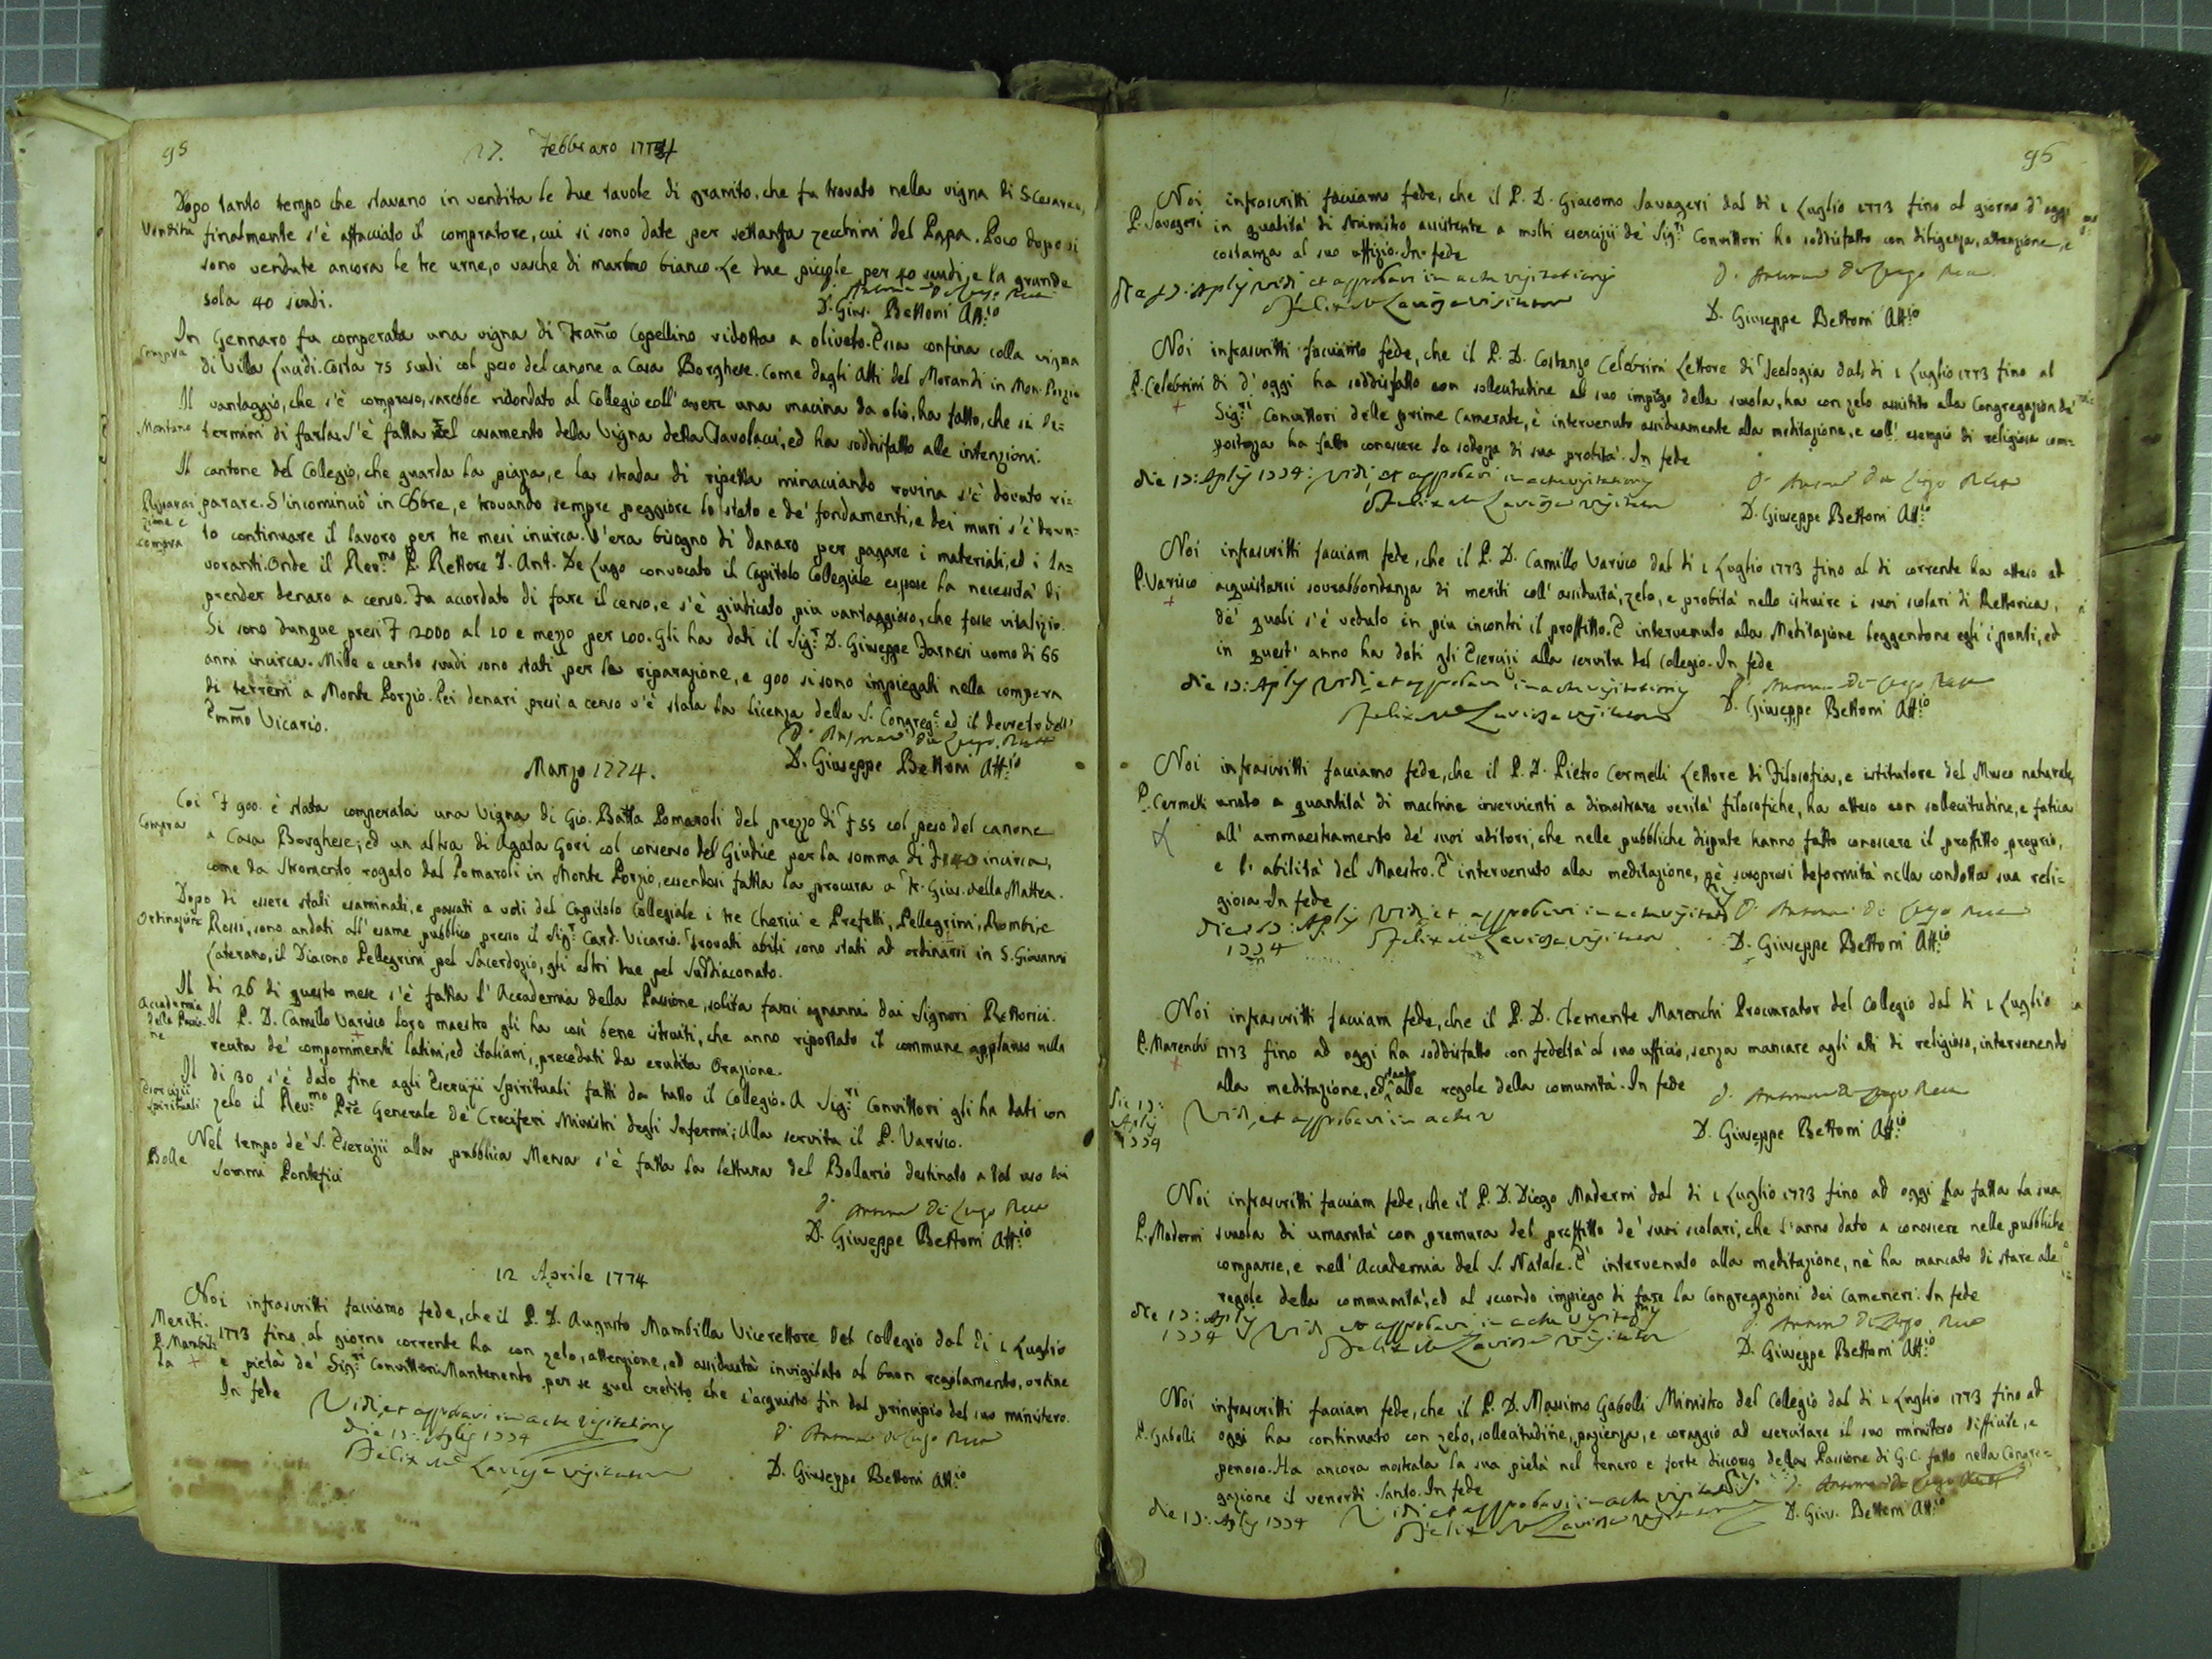 95
27. Febbraro 1774
Dopo tanto tempo che stavano in vendita le due tavole di granito, che fu trovato nella vigna di S. Cesareo,
Vendita
finalmente s'è affacciato il compratore, cui si sono date per settanta zecchini del Papa. Poco dopo si
sono vendute ancora le tre urne, o vasche di marmo bianco. Le due piccole per 40 scudi, e la grande
sola 40 scudi.
D. Giu. Bettoni Att.io
In Gennaro fu comperata una vigna di Franco Copellino ridotta a oliveto. Essa confina colla vigna
Compra
di Villa Lucidi. Costa 75 scudi col peso del canone a Casa Borghese. Come dagli Atti del Morandi in Mon. Porzio
Il vantaggio, che s'è compreso, sarebbe ridondato al Collegio coll'avere una macina da olio, ha fatto, che si de=
Montano
termini di farla. S'è fatta nel casamento della Vigna detta Tavolacci, ed ha soddisfatto alle intenzioni.
Il cantone del Collegio, che guarda la piazza, e la strada di ripetta minacciando rovina s'è dovuto ri=
Riparazione e compra
parare. S'incominciò in Obre, e trovando sempre peggiore lo stato e de' fondamenti, e dei muri s'è dovu=
to continuare il lavoro per tre mesi incirca. V'era bisogno di danaro per pagare i materiali, ed i la=
voranti. Onde il Rev.mo P. Rettore D. Ant. De Lugo convocato il Capitolo Collegiale espose la necessità di
prender denaro a censo. Fu accordato di fare il censo, e s'è giudicato piu vantaggioso, che fosse vitalizio.
Si sono dunque presi 2000 al 10 e mezzo per 100. Gli ha dati il Sig.r D. Giuseppe Farnesi uomo di 66
anni incirca. Mille e cento scudi sono stati per la riparazione, e 900 si sono impiegati nella compera
di terreni a Monte Porzio. Pei denari presi a censo v'è stata la licenza della S. Congreg.e ed il decreto dell'
Emmo Vicario.
D. Giuseppe Bettoni Att.io
Marzo 1774.
Coi 900. è stata comperata una Vigna di Gio. Batta Pomaroli del prezzo di 55 col peso del canone
Compra
a Casa Borghese; ed un altra di Agata Gori col consenso del Giudice per la somma di incirca,
come da Stromento rogato dal Pomaroli in Monte Porzio, essendosi fatta la procura a Fr. Gius. della Mattea.
Dopo di essere stati esaminati, e passati a voti del Capitolo Collegiale i tre Cherici e Prefetti, Pellegrini, Rombi, e
Ordinazione
Rossi, sono andati all'esame pubblico presso il Sig.r Card. Vicario. Trovati abili sono stati ad ordinarsi in S. Giovanni
Laterano, il Diacono Pellegrini pel Sacerdozio, gli altri due pel Suddiaconato.
Il di 26 di questo mese s'è fatta l'Accademia della Passione, solita farsi ognanni dai Signori Rettorici.
Accademia della Passione
Il P. D. Camillo Varisco loro maestro gli ha così bene istruiti, che anno riportato il commune applauso nella
recita de' componimenti latini, ed italiani, preceduti da erudita Orazione.
Il di 30 s'è dato fine agli Esercizii Spirituali fatti da tutto il Collegio. A Sig.ri Convittori gli ha dati con
Esercizii spirituali
zelo il Rev.mo Pre Generale de' Crociferi Ministri degli Infermi; Alla servitu il P. Varisco.
Nel tempo de' S. Esercizii alla pubblica Mensa s'è fatta la lettura del Bollario destinato a tal uso dai
Bolle
Sommi Pontefici
D. Giuseppe Bettoni Att.io
12 Aprile 1774
Noi infrascritti facciamo fede, che il P. D. Augusto Mambilla Vicerettore del Collegio dal di 1 Luglio
Meriti.
P. Mambilla +
1773 fino al giorno corrente ha con zelo, attenzione, ed assiduità invigilato al buon regolamento, ordine
e pietà de' Sig.ri Convittori. Mantenendo per se quel credito che s'acquisto fin dal principio del suo ministero.
In fede
Vidi, et approbavi in actu visitationis
die 13: Aplis 1774
D. Giuseppe Bettoni Att.io
96
Noi infrascritti facciamo fede, che il P. D. Giacomo Savageri dal di 1 Luglio 1773 fino al giorno d'oggi
P. Savageri
in qualità di Ministro assistente a molti esercizii de' Sig.ri Convittori ha soddisfatto con diligenza, attenzione, e
costanza al suo uffizio. In fede
die 13: Aplis vidi et approbavi in actu visitationis
D. Giuseppe Bettoni Att.io
Noi infrascritti facciamo fede, che il P. D. Costanzo Celebrini Lettore di Teologia dal di 1 Luglio 1773 fino al
P. Celebrini +
di d'oggi ha soddisfatto con sollecitudine al suo impiego della scuola, ha con zelo assistito alla Congregazion de'
Sig.ri Convittori delle prime Camerate, è intervenuto assiduamente alla meditazione, e coll'esempio di religiosa com=
postezza ha fatto conoscere la sodezza di sua probità. In fede
die 13: Aplis 1774: vidi, et approbavi in actu visitationis
D. Giuseppe Bettoni Att.io
Noi infrascritti facciam fede, che il P. D. Camillo Varisco dal di 1 Luglio 1773 fino al di corrente ha atteso ad
P. Varisco +
acquistarsi sovrabbondanza di meriti coll'assiduità, zelo, e probità nello istruire i suoi scolari di Rettorica,
de' quali s'è veduto in piu incontri il proffitto. È intervenuto alla Meditazione leggendone egli i punti, ed
in quest'anno ha dati gli Esercizii alla servitu del Collegio. In fede
die 13: Aplis vidi, et approbavi in actu visitationis
D. Giuseppe Bettoni Att.io
Noi infrascritti facciamo fede, che il P. D. Pietro Cermelli Lettore di Filosofia, e istitutore del Museo naturale,
P. Cermelli
unito a quantità di machine inservienti a dimostrare verità filosofiche, ha atteso con sollecitudine, e fatica
all'ammaestramento de' suoi uditori, che nelle pubbliche dispute hanno fatto conoscere il proffitto proprio,
e l'abilità del Maestro. È intervenuto alla meditazione, nè scopresi deformità nella condotta sua reli=
giosa. In fede
die 13: Aplis 1774 Vidi, et approbavi in actu visitationis
D. Giuseppe Bettoni Att.io
Noi infrascritti facciam fede, che il P. D. Clemente Marenchi Procurator del Collegio dal di 1 Luglio
P. Marenchi +
1773 fino ad oggi ha soddisfatto con fedeltà al suo ufficio, senza mancare agli atti di religioso, intervenendo
alla meditazione, ed alle regole della comunità. In fede
die 13: Aplis 1774
Vidi, et approbavi in actu
D. Giuseppe Bettoni Att.io
Noi infrascritti facciam fede, che il P. D. Diego Maderni dal di 1 Luglio 1773 fino ad oggi ha fatta la sua
P. Maderni
scuola di umanità con premura del proffitto de' suoi scolari, che l'anno dato a conoscere nelle pubbliche
comparse, e nell'Accademia del S. Natale. È intervenuto alla meditazione, nè ha mancato di stare alle
regole della communità, ed al secondo impiego di fare la Congregazioni dei Camerieri. In fede
die 13: Aplis 1774 Vidi et approbavi in actu visitationis
D. Giuseppe Bettoni Att.io
Noi infrascritti facciam fede, che il P. D. Massimo Gabolli Ministro del Collegio dal di 1 Luglio 1773 fino ad
P. Gabolli
oggi ha continuato con zelo, sollecitudine, pazienza, e coraggio ad esercitare il suo ministero difficile, e
penoso. Ha ancora mostrata la sua pietà nel tenero e forte discorso della Passione di G.C. fatto nella Congre=
gazione il venerdi Santo. In fede
die 13: Aplis 1774 Vidi et approbavi in actu visitationis
D. Giu. Bettoni Att.io